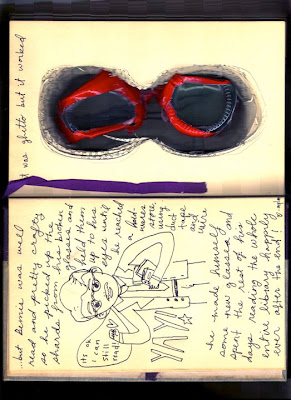 ...but Bemis was well
read and pretty crafty
so he picked up the
shards from his broken
glasses and
held them
up to his
eyes until
he reached
a hard-
ware
store
using
duct
tape
and
wire
its ok
i can
still
read!
YAY!
he made himself
some new glasses and
spent the rest of his
days reading the whole
entire library, happily
ever after. the end
it was ghetto but it worked